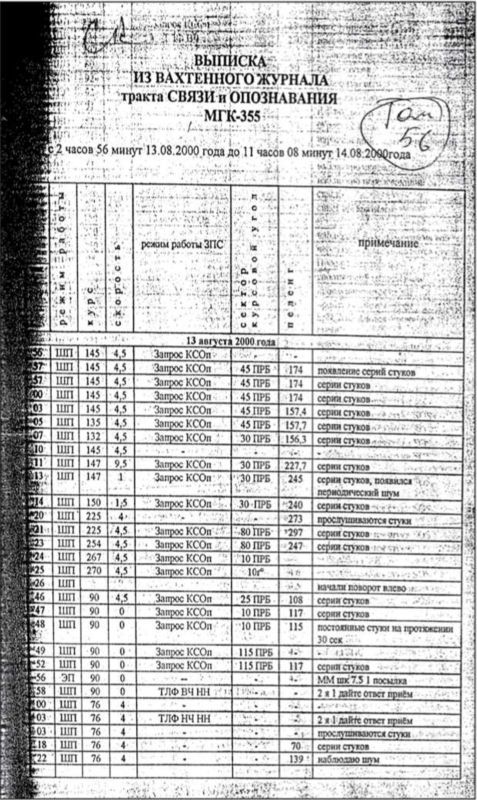 ВЫПИСКА
ИЗ ВАХТЕННОГО ЖУРНАЛА
тракта СВЯЗИ и ОПОЗНАВАНИЯ
МГК-355
Том
56
с 2 часов 56 минут 13.08.2000 года до 11 часов 08 минут 14.08.2000года
режим работы курс скорость режим работы ЗПС сектор курсовой угол пеленг примечание
13 августа 2000 года
56 ШП 145 4,5 Запрос КСОп - - -
57 ШП 145 4,5 Запрос КСОп 45 ПРБ 174 появление серий стуков
57 ШП 145 4,5 Запрос КСОп 45 ПРБ 174 серии стуков
00 ШП 145 4,5 Запрос КСОп 45 ПРБ 174 серии стуков
03 ШП 145 4,5 Запрос КСОп 45 ПРБ 157,4 серии стуков
05 ШП 135 4,5 Запрос КСОп 45 ПРБ 157,7 серии стуков
07 ШП 132 4,5 Запрос КСОп 30 ПРБ 156,3 серии стуков
10 ШП 145 4,5 - - - -
11 ШП 147 9,5 Запрос КСОп 30 ПРБ 227,7 серии стуков
13 ШП 147 1 Запрос КСОп 30 ПРБ 245 серии стуков, появился
периодический шум
14 ШП 150 1,5 Запрос КСОп 30 ПРБ 240 серии стуков
20 ШП 225 4 - - 273 прослушиваются стуки
21 ШП 225 4,5 Запрос КСОп 80 ПРБ 297 серии стуков
23 ШП 254 4,5 Запрос КСОп 80 ПРБ 247 серии стуков
24 ШП 267 4,5 Запрос КСОп 10 ПРБ
25 ШП 270 4,5 Запрос КСОп - -
26 ШП начали поворот влево
46 ШП 90 4,5 Запрос КСОп 25 ПРБ 108 серии стуков
47 ШП 90 0 Запрос КСОп 10 ПРБ 117 серии стуков
48 ШП 90 0 Запрос КСОп 10 ПРБ 115 постоянные стуки на протяжении
30 сек
49 ШП 90 0 Запрос КСОп 115 ПРБ - -
52 ШП 90 0 Запрос КСОп 115 ПРБ 117 серии стуков
56 ЭП 90 0 - - - ММ шк 7.5 1 посылка
58 ШП 90 0 ТЛФ ВЧ НН - - 2 я 1 дайте ответ приём
00 ШП 76 4 - - - -
03 ШП 76 4 ТЛФ НЧ НН - - 2 я 1 дайте ответ приём
03 ШП 76 4 - - - прослушиваются стуки
18 ШП 76 4 - - 70 серии стуков
22 ШП 76 4 - - 139 наблюдаю шум